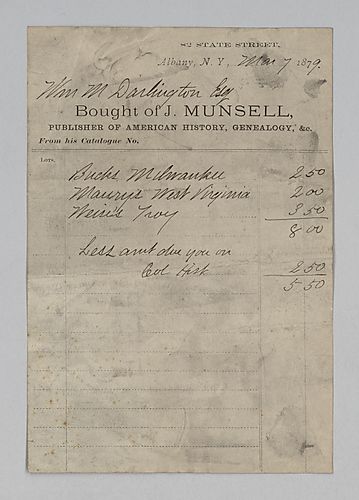 82 STATE STREET,
Albany, N. Y., Mar 7 1879.
Wm M Darlington Esq
Bought of J. MUNSELL,
PUBLISHER OF AMERICAN HISTORY, GENEALOGY, &c.
From his Catalogue No.
LOTS.
Bucks Milwaukee 2 50
Maurys West Virginia 2 00
Weise's Troy 3 50
8 00
Less amt due you on
Col Hist 2 50
5 50